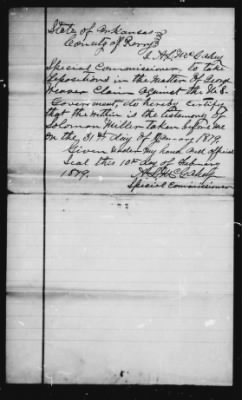 State of Arkansas
County of Perry
I, A.L. McCaddy
Special Commissioner to take
Depositions in the matter of George
Weaver Claim Against the U.S.
Government, do hereby certify
that the within is the testimony of
Solomon Miller taken before me
on the 31st day of January 1879.
Given under my hand and official
Seal this 10th day of February
1879.
Special Commissioner